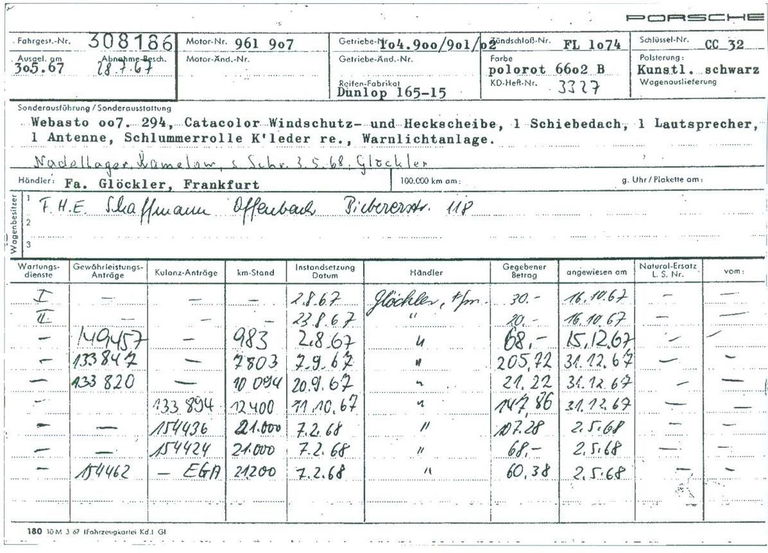 PORSCHE
Fahrgest.-Nr. 308186 Motor-Nr. 961 907 Getriebe-Nr. 1o4.9oo/9o1/o2 Zündschloß-Nr. FL 1o74 Schlüssel-Nr. CC 32
Ausgel. am 3o5.67 Abnahme-Besch. 28.7.67 Motor-Änd.-Nr. Getriebe-Änd.-Nr. Farbe polorot 66o2 B Polsterung: Kunstl. schwarz
Reifen-Fabrikat Dunlop 165-15 KD-Heft-Nr. 3327 Wagenauslieferung
Sonderausführung / Sonderausstattung
Webasto oo7. 294, Catacolor Windschutz- und Heckscheibe, 1 Schiebedach, 1 Lautsprecher,
1 Antenne, Schlummerrolle K'leder re., Warnlichtanlage.
Nadellager 3.5.68, Glöckler
Händler: Fa. Glöckler, Frankfurt 100.000 km am: g. Uhr / Plakette am:
Wagenbesitzer
1 F.H.E. Schaffmann Offenbach Biebererstr. 118
2
3
Wartungsdienste Gewährleistungs-Anträge Kulanz-Anträge km-Stand Instandsetzung Datum Händler Gegebener Betrag angewiesen am Natural-Ersatz L. S. Nr. vom:
I — — — 2.8.67 Glöckler, Ffm. 30.- 16.10.67 — —
II. — — — 23.8.67 " 30.- 16.10.67 — —
— 149457 — 983 2.8.67 " 68,- 15.12.67 — —
— 133847 — 7803 7.9.67 " 205,72 31.12.67 — —
— 133820 — 10094 20.9.67 " 21.22 31.12.67 — —
— 133894 12400 11.10.67 " 147,86 31.12.67 — —
— — 154436 21.000 7.2.68 " 107.28 2.5.68 — —
— — 154424 21.000 7.2.68 " 68,- 2.5.68 — —
— 154462 — EGA 21200 7.2.68 " 60,38 2.5.68 — —
180 10 M 3 67 (Fahrzeugkartei Kd.) Gl